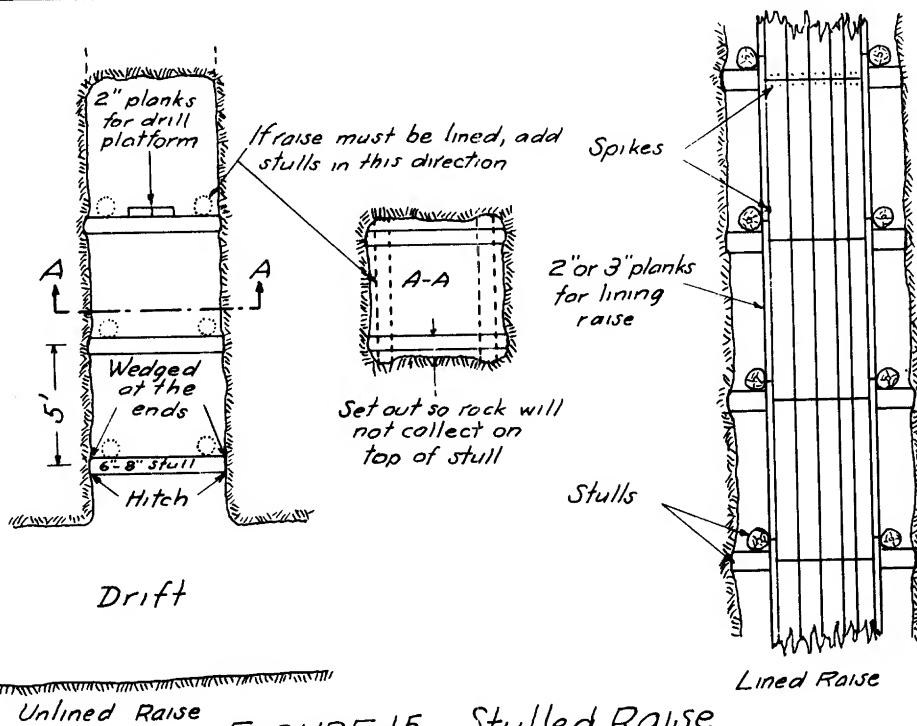 2" planks
for drill
platform
If raise must be lined, add
stulls in this direction
A
A
5'
Wedged
at the
ends
6"-8" stull
Hitch
Drift
Unlined Raise
A-A
Set out so rock will
not collect on
top of stull
Spikes
2" or 3" planks
for lining
raise
Stulls
Lined Raise
FIGURE 15. Stulled Raise